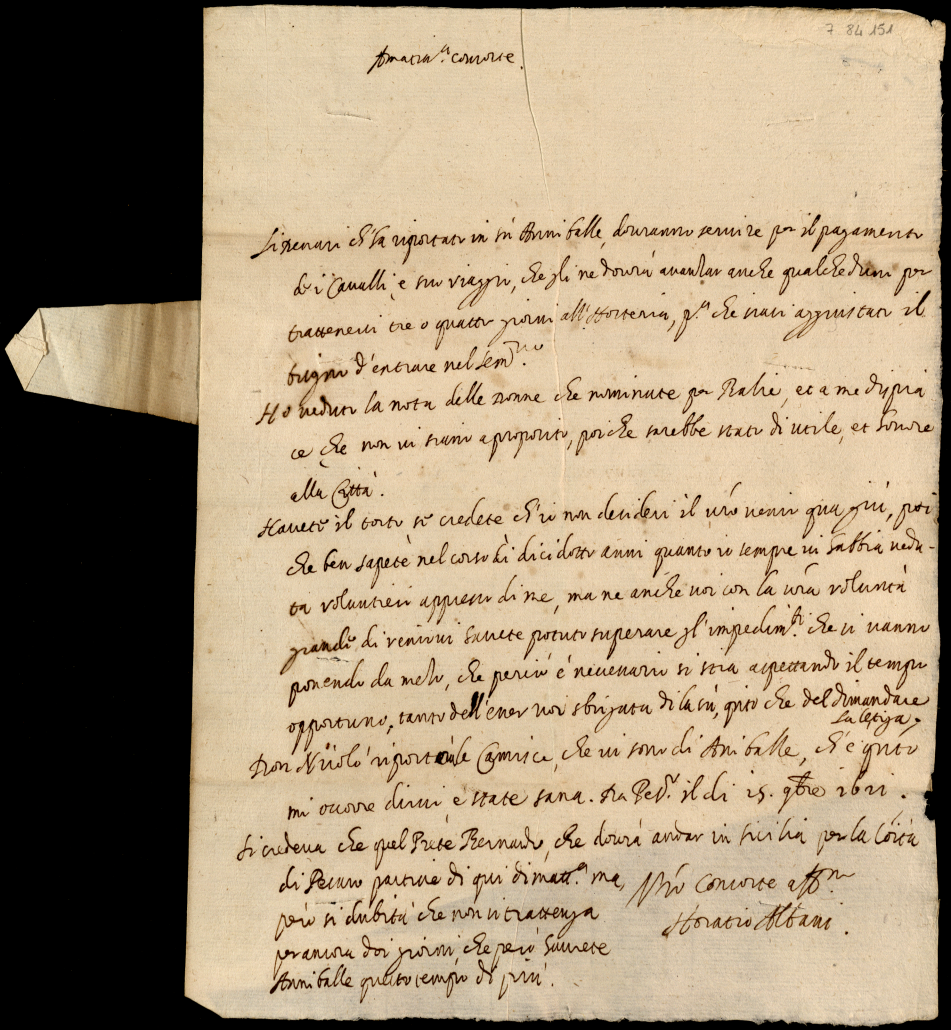 7 84 151
Amatiss.a Consorte.
Li denari ch'ha riportati in sù Anniballe, dovranno servire per il pagamento
de i Cavalli, e suo viaggio, che gli ne dovrà avanzar anche qualcheduni per
trattenersi tre o quattro giorni all'Hosteria, p.a che siavi aggiustato il
d'entrare nel Sem.rio.
Hò veduto la nota delle donne che nominate per Balie, et a me dispia
ce che non vi siano a proposito, poiche sarebbe stato di utile, et honore
alla Città.
Havete il torto se credete ch'io non desideri il vr̃o venir qua giù, poi
che ben sapete nel corso di dicidotto anni quanto io sempre vi habbia vedu-
ta volentieri appresso di me, ma ne anche voi con la vr̃a voluntà
grande di venirvi havete potuto superare gl'impedim.ti che vi vanno
ponendo da melo, che perciò è necessario si stia aspettando il tempo
opportuno, tanto dell'esser voi sbrigata di la sù, q̃nto che del dimandare
la letiga.
Don Nicolò riportò le Camisce, che vi sono di Aniballe, ch'è q̃nto
mi occorre dirvi e state sana. Da Pes.o il di 25. 9bre 1621.
Si credeva che quel Prete Bernardo, che dovrà andar in Sicilia per la Città
di Pesaro partisse di qui dimatt.a ma
però si dubita che non si trattenga
per ancora doi giorni, che però havrete
Anniballe questo tempo di più.
Vr̃o Consorte aff.mo
Horatio Albani.